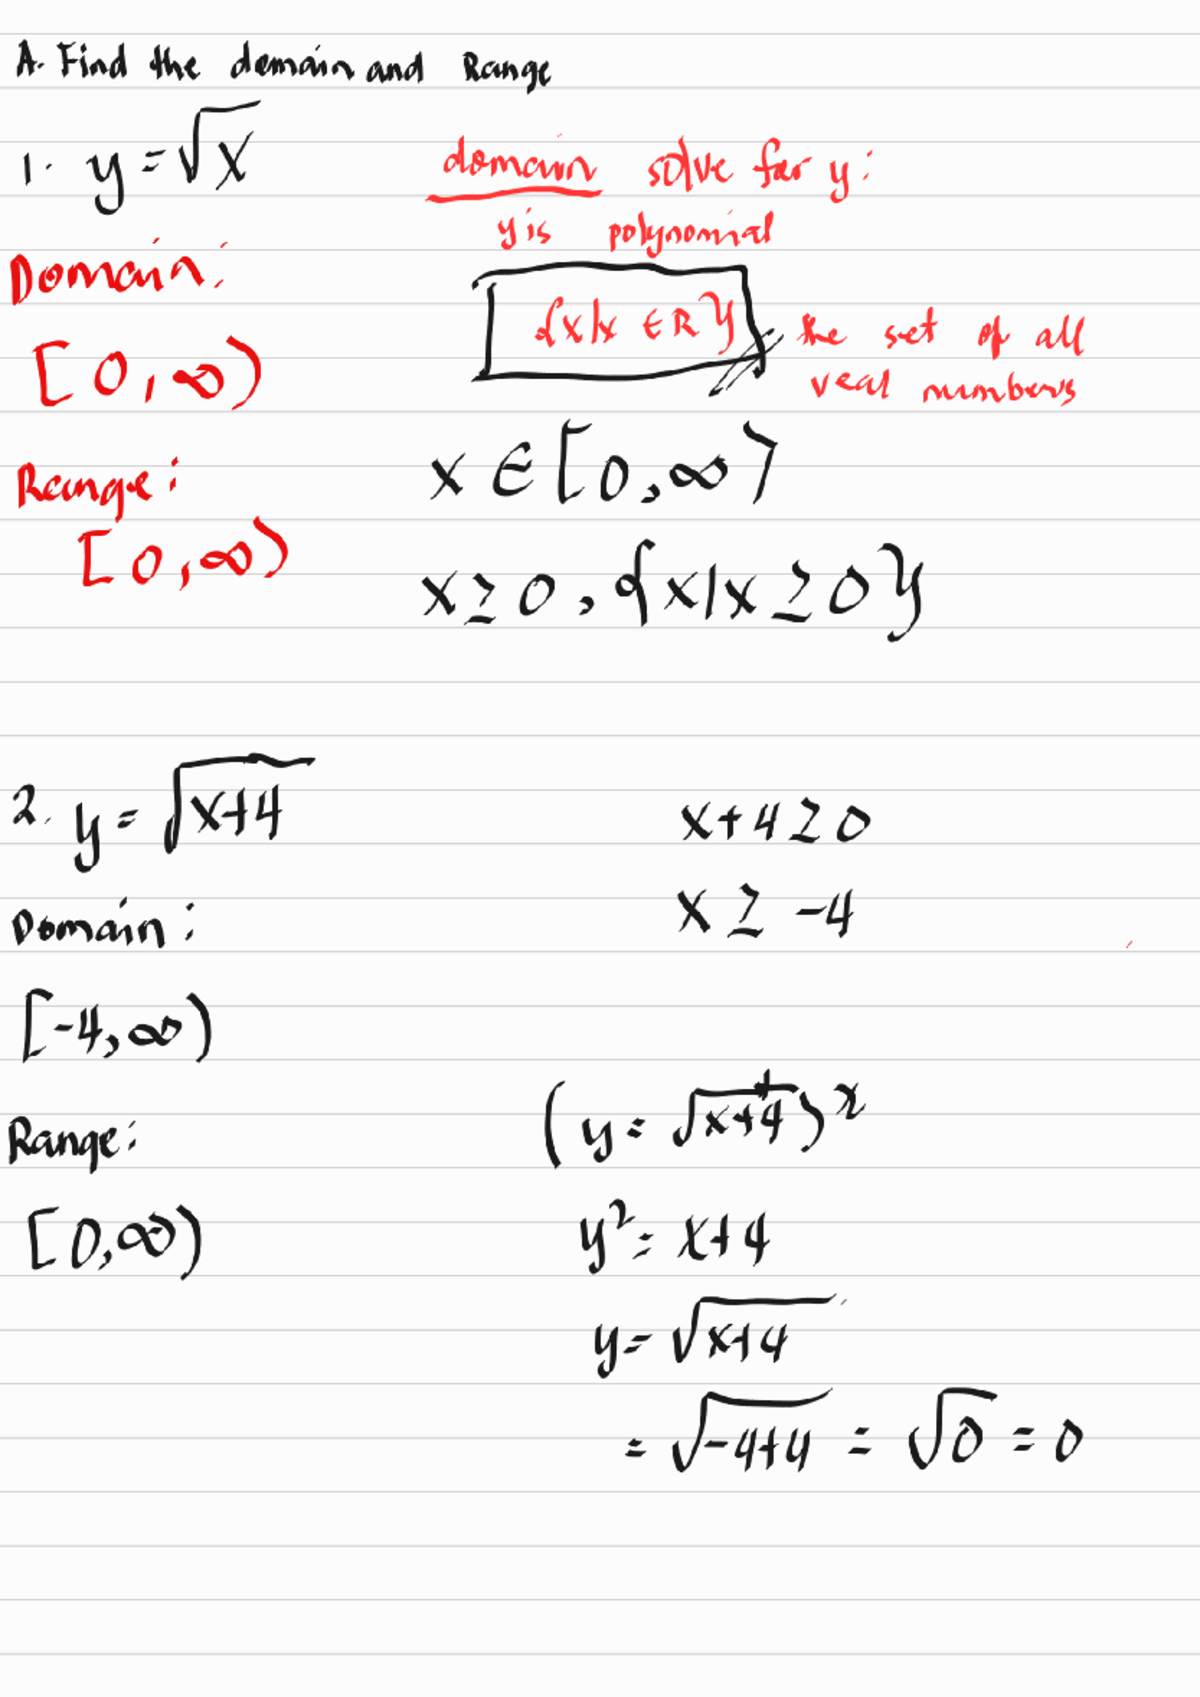 A. Find the domain and Range
1. y = √x
domain solve for y:
y is polynomial
Domain:
{x|x ∈ R}
the set of all
real numbers
[0, ∞)
x ∈ [0, ∞)
Range:
[0, ∞)
x ≥ 0, {x|x ≥ 0}
2. y = √x+4
x+4 ≥ 0
x ≥ -4
Domain:
[-4, ∞)
(y = √x+4)²
Range:
y² = x+4
[0, ∞)
y = √x+4
= √-4+4 = √0 = 0